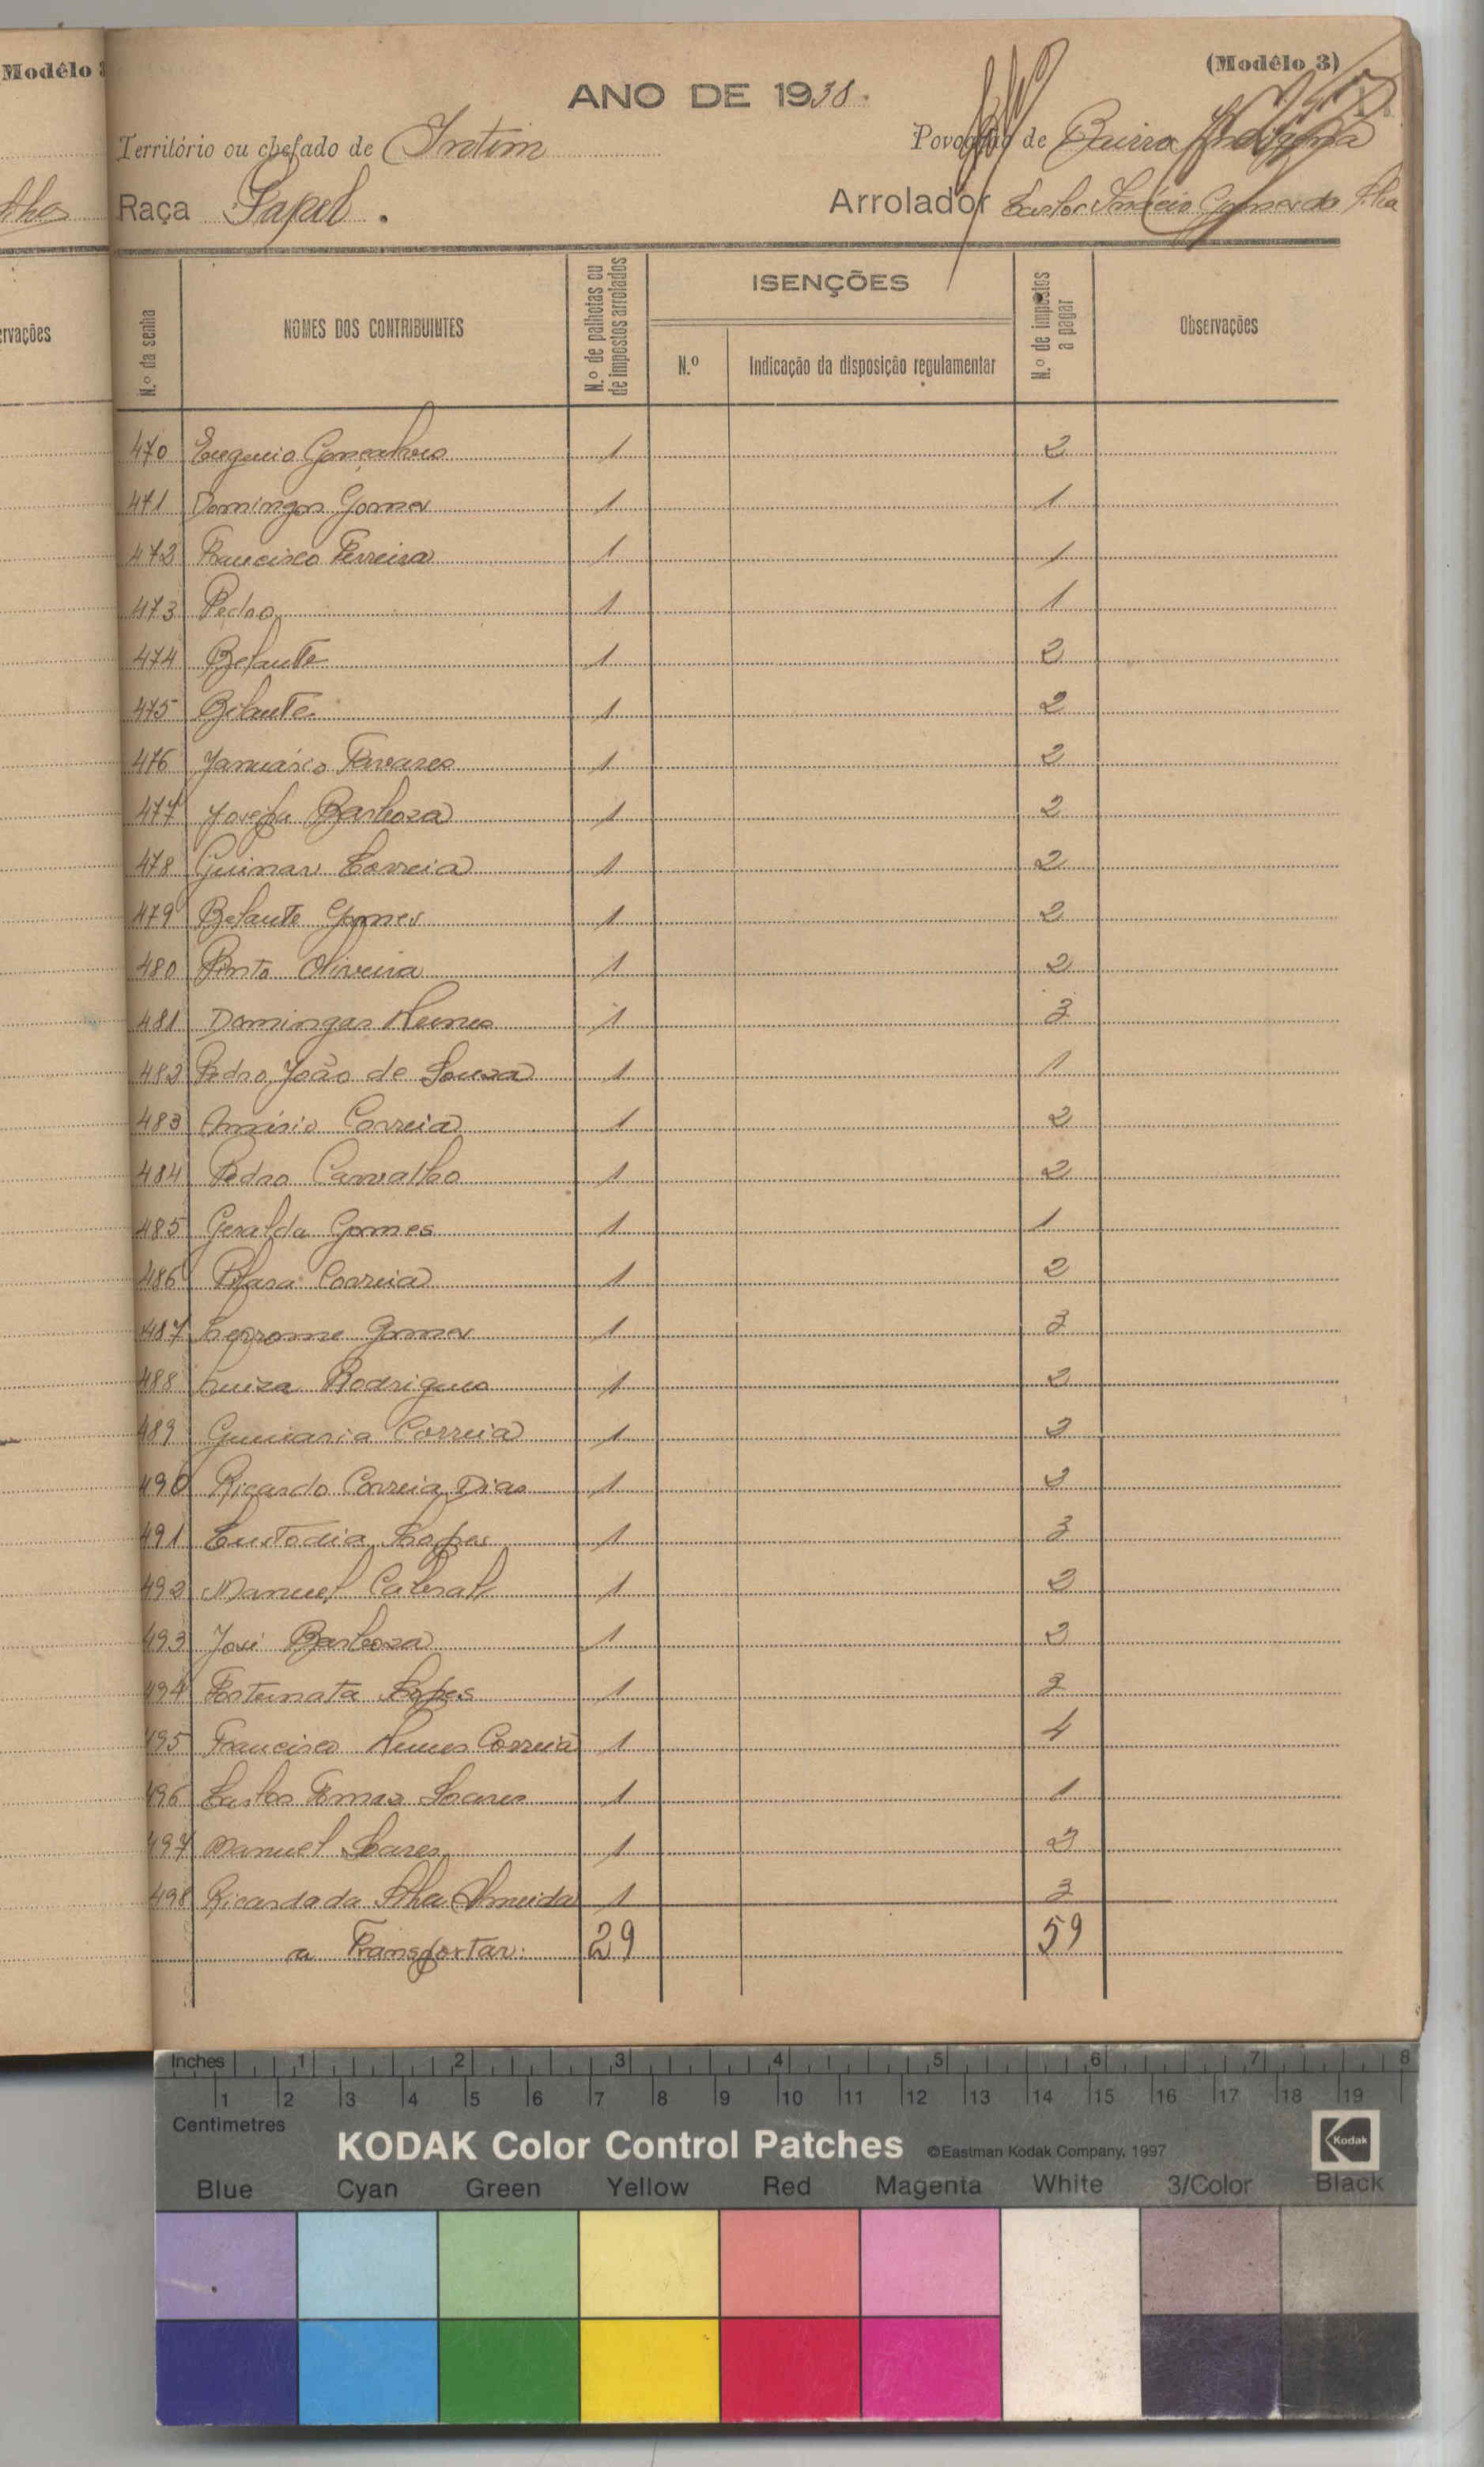 Modêlo
(Modêlo 3)
ANO DE 1938.
Território ou chefado de Intim
Povoação de Bairro Indigena
Raça Papel.
Arrolador Carlos Inácio Gomes da Silva
rvações
N.º da senha
NOMES DOS CONTRIBUINTES
N.º de palhotas ou de impostos arrolados
ISENÇÕES
N.º
Indicação da disposição regulamentar
N.º de impostos a pagar
Observações
470 Eugenio Gonçalves 1 2
471 Domingos Gomes 1 1
472 Francisco Ferreira 1 1
473 Pedro 1 1
474 Belante 1 2
475 Belante 1 2
476 Januário Tavares 1 2
477 Josefa Barboza 1 2
478 Guimar Correia 1 2
479 Belante Gomes 1 2
480 Pinto Oliveira 1 2
481 Domingas Nunes 1 3
482 Pedro João de Souza 1 1
483 Correia 1 2
484 Pedro Carvalho 1 2
485 Geralda Gomes 1 1
486 Correia 1 2
487 Gomes 1 3
488 Luiza Rodrigues 1 2
489 Correia 1 2
490 Ricardo Correia Dias 1 2
491 Custodia Lopes 1 3
492 Manuel Cabral 1 2
493 José Barboza 1 2
494 Fortunata Lopes 1 3
495 Francisco Nunes Correia 1 4
496 Carlos Tomaz Soares 1 1
497 Manuel Soares 1 2
498 Ricarda da Silva Almeida 1 3
a Transportar: 29 59
Inches 1 2 3 4 5 6 7 8
1 2 3 4 5 6 7 8 9 10 11 12 13 14 15 16 17 18 19
Centimetres
KODAK Color Control Patches ©Eastman Kodak Company, 1997 Kodak
Blue Cyan Green Yellow Red Magenta White 3/Color Black